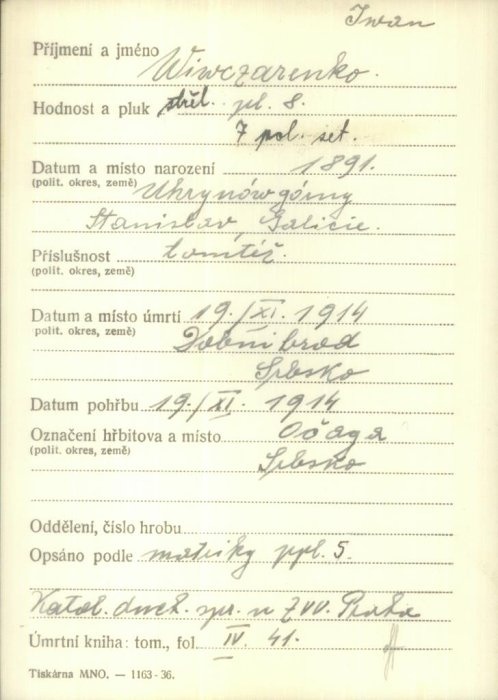 Iwan
Příjmení a jméno Wiwczarenko.
Hodnost a pluk střel. pl. 8.
7 pol. set.
Datum a místo narození 1891.
(polit. okres, země) Uhrynów górny
Stanislav, Galicie.
Příslušnost tamtéž.
(polit. okres, země)
Datum a místo úmrtí 19./XI. 1914
polit. okres, země) Dobri brod
Srbsko
Datum pohřbu 19./XI. 1914
Označení hřbitova a místo Očaga
(polit. okres, země) Srbsko
Oddělení, číslo hrobu
Opsáno podle matriky ppl. 5.
Katol. duch. spr. u ZVV. Praha
Úmrtní kniha: tom., fol. IV. 41.
Tiskárna MNO. — 1163-36.